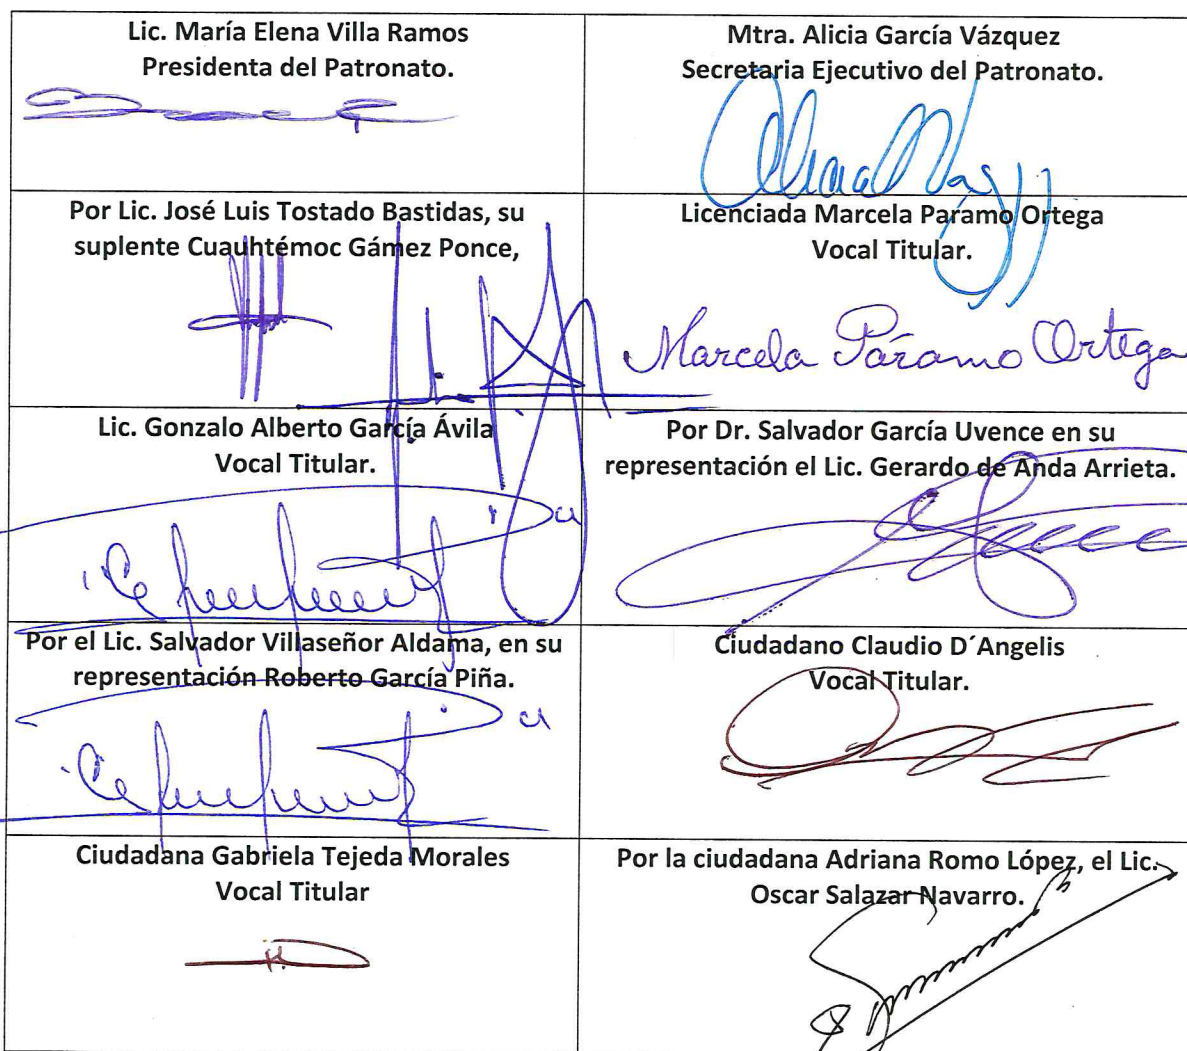 Lic. María Elena Villa Ramos
Presidenta del Patronato.
Mtra. Alicia García Vázquez
Secretaria Ejecutivo del Patronato.
Por Lic. José Luis Tostado Bastidas, su
suplente Cuauhtémoc Gámez Ponce,
Licenciada Marcela Paramo Ortega
Vocal Titular.
Marcela Páramo Ortega
Lic. Gonzalo Alberto García Ávila
Vocal Titular.
Por Dr. Salvador García Uvence en su
representación el Lic. Gerardo de Anda Arrieta.
Por el Lic. Salvador Villaseñor Aldama, en su
representación Roberto García Piña.
Ciudadano Claudio D´Angelis
Vocal Titular.
Ciudadana Gabriela Tejeda Morales
Vocal Titular
Por la ciudadana Adriana Romo López, el Lic.
Oscar Salazar Navarro.